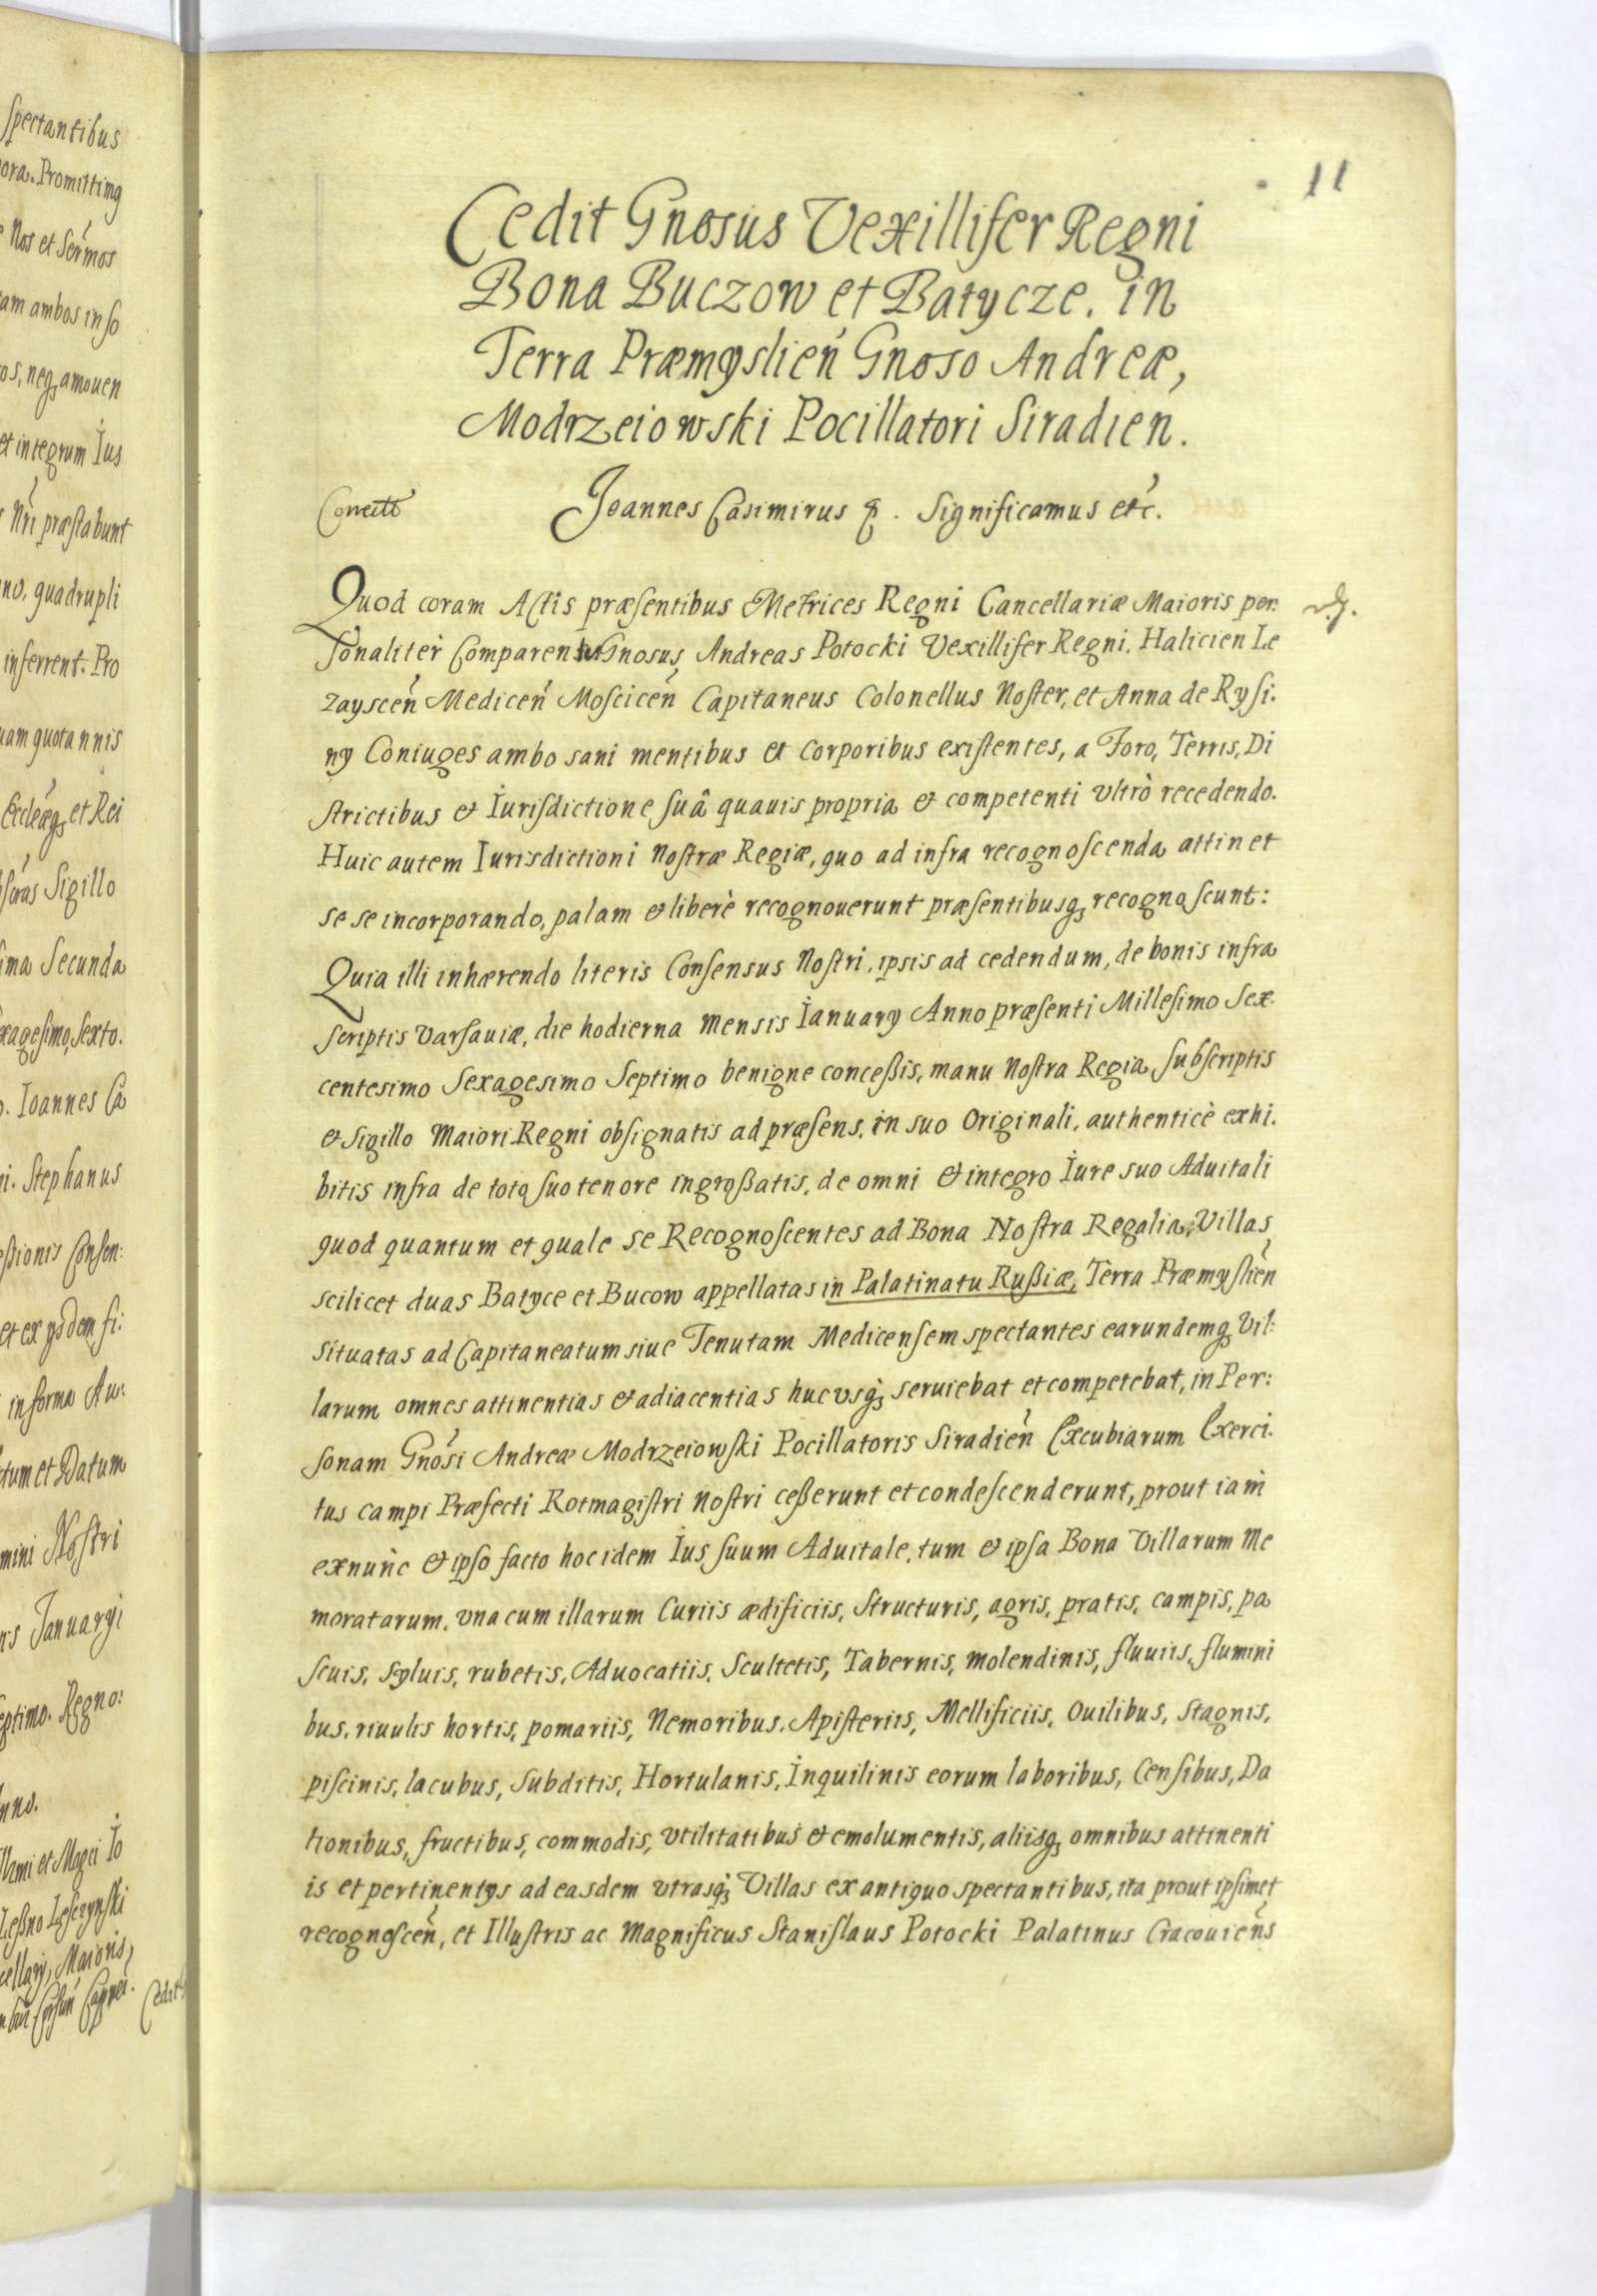 spectantibus
ora. Promittimq
Nos et Sermos
tam ambos in so
os, neq amouen
et integrum Ius
Nri præstabunt
no, quadrupli
inferrent. Pro
uam quotannis
Eccleæq et Rei
Sigillo
ima Secunda
xagesimo, sexto.
Ioannes Ca
i. Stephanus
essionis Consen:
et ex ysdem si:
in forma Au:
tum et Datum
mini Nostri
is Januaryi
eptimo. Regno:
nno.
et Magci Io
Leßno Lesczynski
cellarij, Maioris,
Cedit
11
Cedit Gnosus Vexillifer Regni
Bona Buczow et Batycze. in
Terra Præmyslien Gnoso Andreæ,
Modrzeiowski Pocillatori Siradien.
Correcte
Joannes Casimirus &. Significamus etc.
Quod coram Actis præsentibus Metrices Regni Cancellariæ Maioris per.
sonaliter Comparen Gnosus Andreas Potocki Vexillifer Regni. Halicien Le
zayscen Medicen Moscicen Capitaneus Colonellus Noster, et Anna de Rysi.
ny Coniuges ambo sani mentibus et corporibus existentes, a Foro, Terris, Di
strictibus et Iurisdictione suâ quauis propria et competenti vltrò recedendo.
Huic autem Iurisdictioni Nostræ Regiæ, quo ad infra recognoscenda attinet
se se incorporando, palam et liberè recognouerunt præsentibusq recognoscunt:
Quia illi inhærendo literis Consensus Nostri, ipsis ad cedendum, de bonis infra
scriptis Varsauiæ, die hodierna Mensis Ianuary Anno præsenti Millesimo Sex
centesimo Sexagesimo Septimo benigne conceßis, manu Nostra Regia, subscriptis
et Sigillo Maiori Regni obsignatis ad præsens, in suo Originali, authenticè exhi.
bitis infra de toto suo tenore ingroßatis, de omni et integro Iure suo Aduitali
quod quantum et quale se Recognoscentes ad Bona Nostra Regalia, Villas
scilicet duas Batyce et Bucow appellatas in Palatinatu Rußiæ, Terra Præmyslien
situatas ad Capitaneatum siue Tenutam Medicensem spectantes earundemq Vil:
larum omnes attinentias et adiacentias hucvsq seruiebat et competebat, in Per:
sonam Gnosi Andreæ Modrzeiowski Pocillatoris Siradien Excubiarum Exerci.
tus campi Præfecti Rotmagistri Nostri ceßerunt et condescenderunt, prout iam
exnunc et ipso facto hoc idem Ius suum Aduitale, tum et ipsa Bona Villarum Me
moratarum, vna cum illarum Curiis ædificiis, Structuris, agris, pratis, campis, pa
scuis, syluis, rubetis, Aduocatiis, Scultetis, Tabernis, molendinis, fluuiis, flumini
bus, riuulis hortis, pomariis, Nemoribus, Apisteriis, Mellificiis, Ouilibus, Stagnis,
piscinis, lacubus, Subditis, Hortulanis, Inquilinis eorum laboribus, Censibus, Da
tionibus, fructibus, commodis, vtilitatibus et emolumentis, aliisq omnibus attinenti
is et pertinentys ad easdem vtrasq Villas ex antiquo spectantibus, ita prout ipsimet
recognoscen, et Illustris ac Magnificus Stanislaus Potocki Palatinus Cracouiens